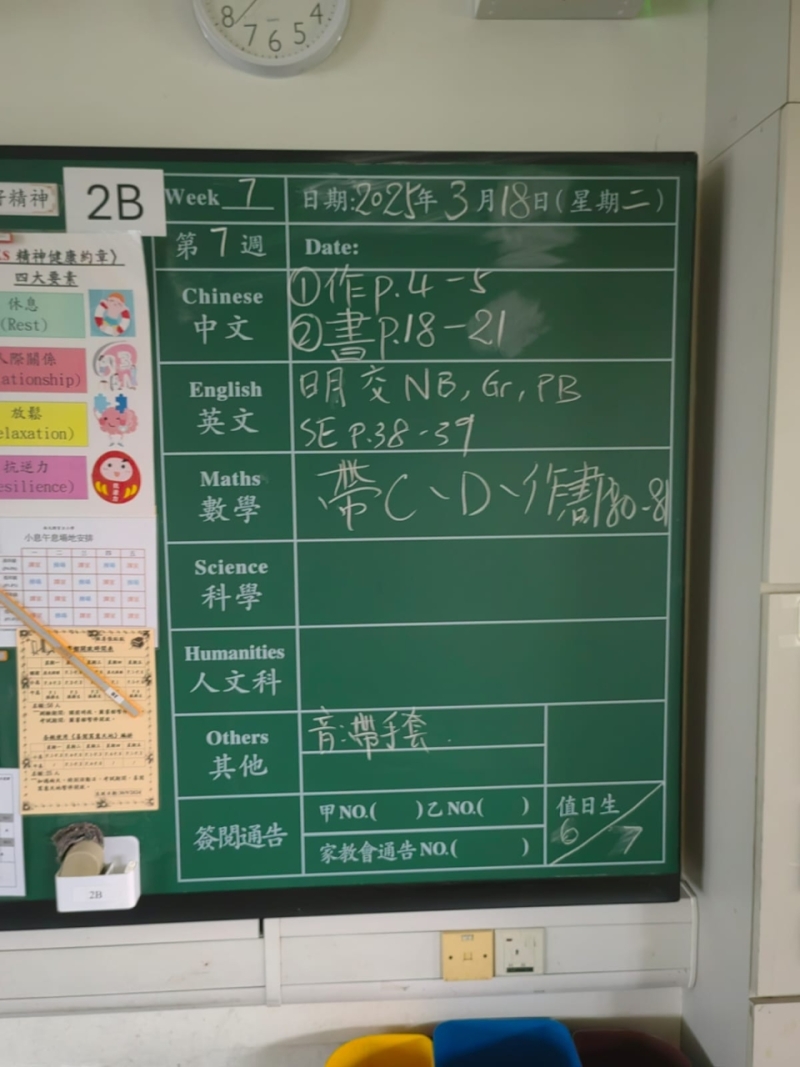 8 7 6 5 4
好精神
2B
Week 7
日期:2025年3月18日(星期二)
第7週
Date:
Chinese
中文
①作 p.4-5
②書 p.18-21
English
英文
明交 NB, Gr, PB
SE P.38-39
Maths
數學
帶C、D、作書
Science
科學
Humanities
人文科
Others
其他
音:帶手套.
簽閱通告
甲NO.( )乙NO.( )
家教會通告NO.( )
值日生
6 7
精神健康約章》
四大要素
休息
(Rest)
人際關係
ationship)
放鬆
elaxation)
抗逆力
esilience)
小息午息場地安排
一 二 三 四 五
2B